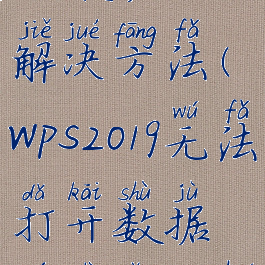 jiě jué fāng fǎ
解决方法(
wú fǎ
WPS2019无法
dǎ kāi shù jù
打开数据